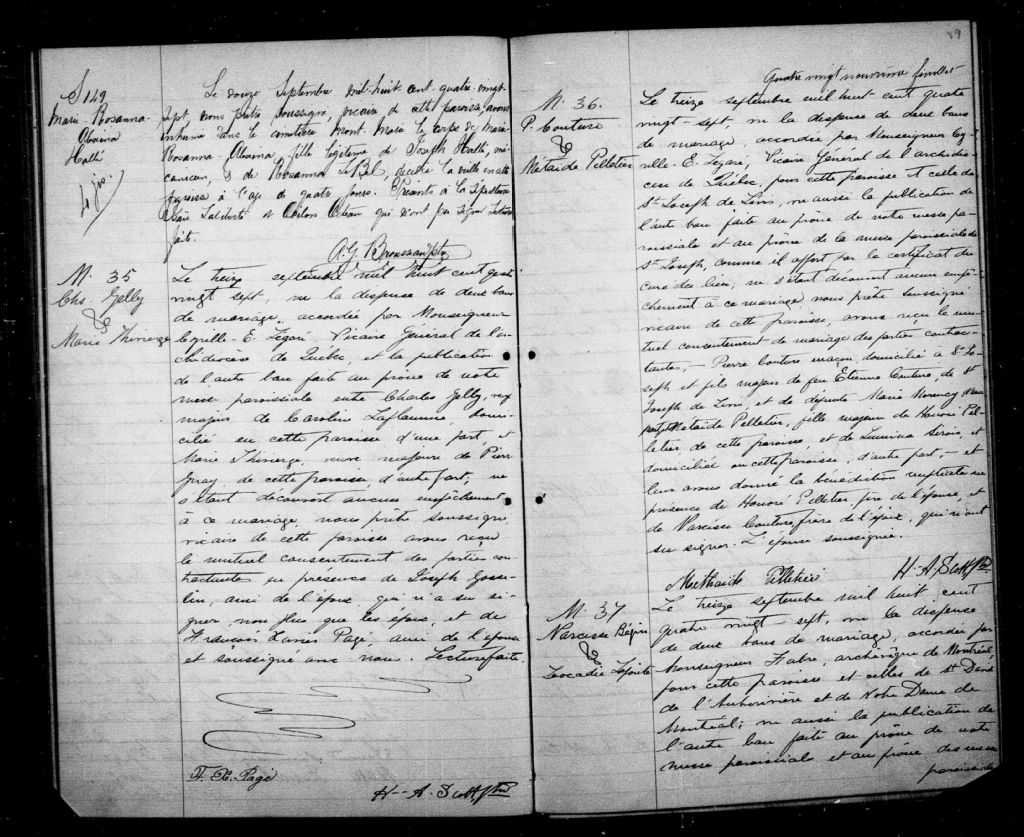 S 149
Marie-Rosanna-
Obaina
Hallé
4 jrs.
Le douze Septembre mil-huit cent quatre-vingt-
sept, nous prêtre soussigné, vicaire de cette paroisse, avons
inhumé dans le cimetière Mont-Marie le corps de Marie-
Rosanna-Obaina, fille légitime de Joseph Hallé, mé-
canicien, & de Rosanna LeBel, décédée la veille en cette
paroisse à l'age de quatre jours. Présents à la sépulture
Laliberté et qui n'ont pu signer Lecture
faite.
A. G. Broussau, ptre
M. 35
Chs. Gelly
&
Marie Thivierge
Le treize septembre mil huit cent quatre
vingt sept, vu la dispense de deux bans
de mariage, accordée par Monseigneur
Cyrille-E. Légaré, Vicaire Général de l'ar-
chidiocèse de Québec, et la publication
de l'autre ban faite au prône de notre
messe paroissiale entre Charles Gelly, veuf
majeur de Caroline Laflamme, domi-
cilié en cette paroisse d'une part, et
Marie Thivierge, veuve majeure de Pierre
Gray, de cette paroisse, d'autre part; ne
s'étant découvert aucun empêchement
à ce mariage, nous prêtre soussigné,
vicaire de cette paroisse avons reçu
le mutuel consentement des parties con-
tractantes en présence de Joseph Gosse-
lin, ami de l'époux, qui n'a su si-
gner non plus que les époux, et de
François Xavier Pagé, ami de l'épouse
et soussigné avec nous. Lecture faite.
F. X. Pagé
H-A. Scott, ptre
89
Quatre vingt neuvième feuillet
M. 36.
P. Couture
&
Metaïde Pelletier
Le treize septembre mil huit cent quatre
vingt-sept, vu la dispense de deux bans
de mariage, accordée par Monseigneur Cy-
rille-E. Légaré, Vicaire Général de l'archidio-
cèse de Québec, pour cette paroisse et celle de
St. Joseph de Lévis, vu aussi la publication de
l'autre ban faite au prône de notre messe pa-
roissiale et au prône de la messe paroissiale de
St. Joseph, comme il appert par le certificat du
curé du lieu; ne s'étant découvert aucun empê-
chement à ce mariage nous prêtre soussigné
vicaire de cette paroisse, avons reçu le mu-
tuel consentement de mariage des parties contrac-
tantes,— Pierre Couture maçon, domicilié à St. Jo-
seph et fils majeur de feu Étienne Couture, de St
Joseph de Lévis, et de défunte Marie Morency d'une
part, et Metaïde Pelletier, fille majeure de Honoré Pel-
letier, de cette paroisse, et de Lumina Sirois, et
domiciliée en cette paroisse, d'autre part,— et
leur avons donné la bénédiction nuptiale en
présence de Honoré Pelletier, père de l'épouse, et
de Narcisse Couture frère de l'époux, qui n'ont
su signer. L'épouse soussignée.
Methaide Pelletier H-A. Scott, ptre
M. 37
Narcisse Bégin
&
Léocadie Lajoie
Le treize septembre mil huit cent
quatre vingt-sept, vu la dispense
de deux bans de mariage, accordée par
Monseigneur Fabre, archevêque de Montréal,
pour cette paroisse et celles de St David
de l'Auberivière et de Notre Dame de
Montréal; vu aussi la publication de
l'autre ban faite au prône de notre
messe paroissiale et au prône des messes
paroissiales